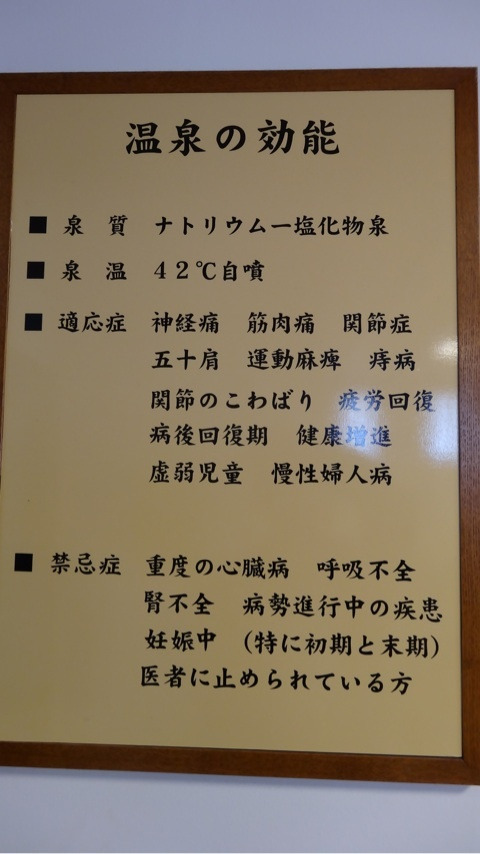 温泉の効能
■ 泉 質 ナトリウムー塩化物泉
■ 泉 温 42℃自噴
■ 適応症 神経痛 筋肉痛 関節症
五十肩 運動麻痺 痔病
関節のこわばり 疲労回復
病後回復期 健康増進
虚弱児童 慢性婦人病
■ 禁忌症 重度の心臓病 呼吸不全
腎不全 病勢進行中の疾患
妊娠中 (特に初期と末期)
医者に止められている方